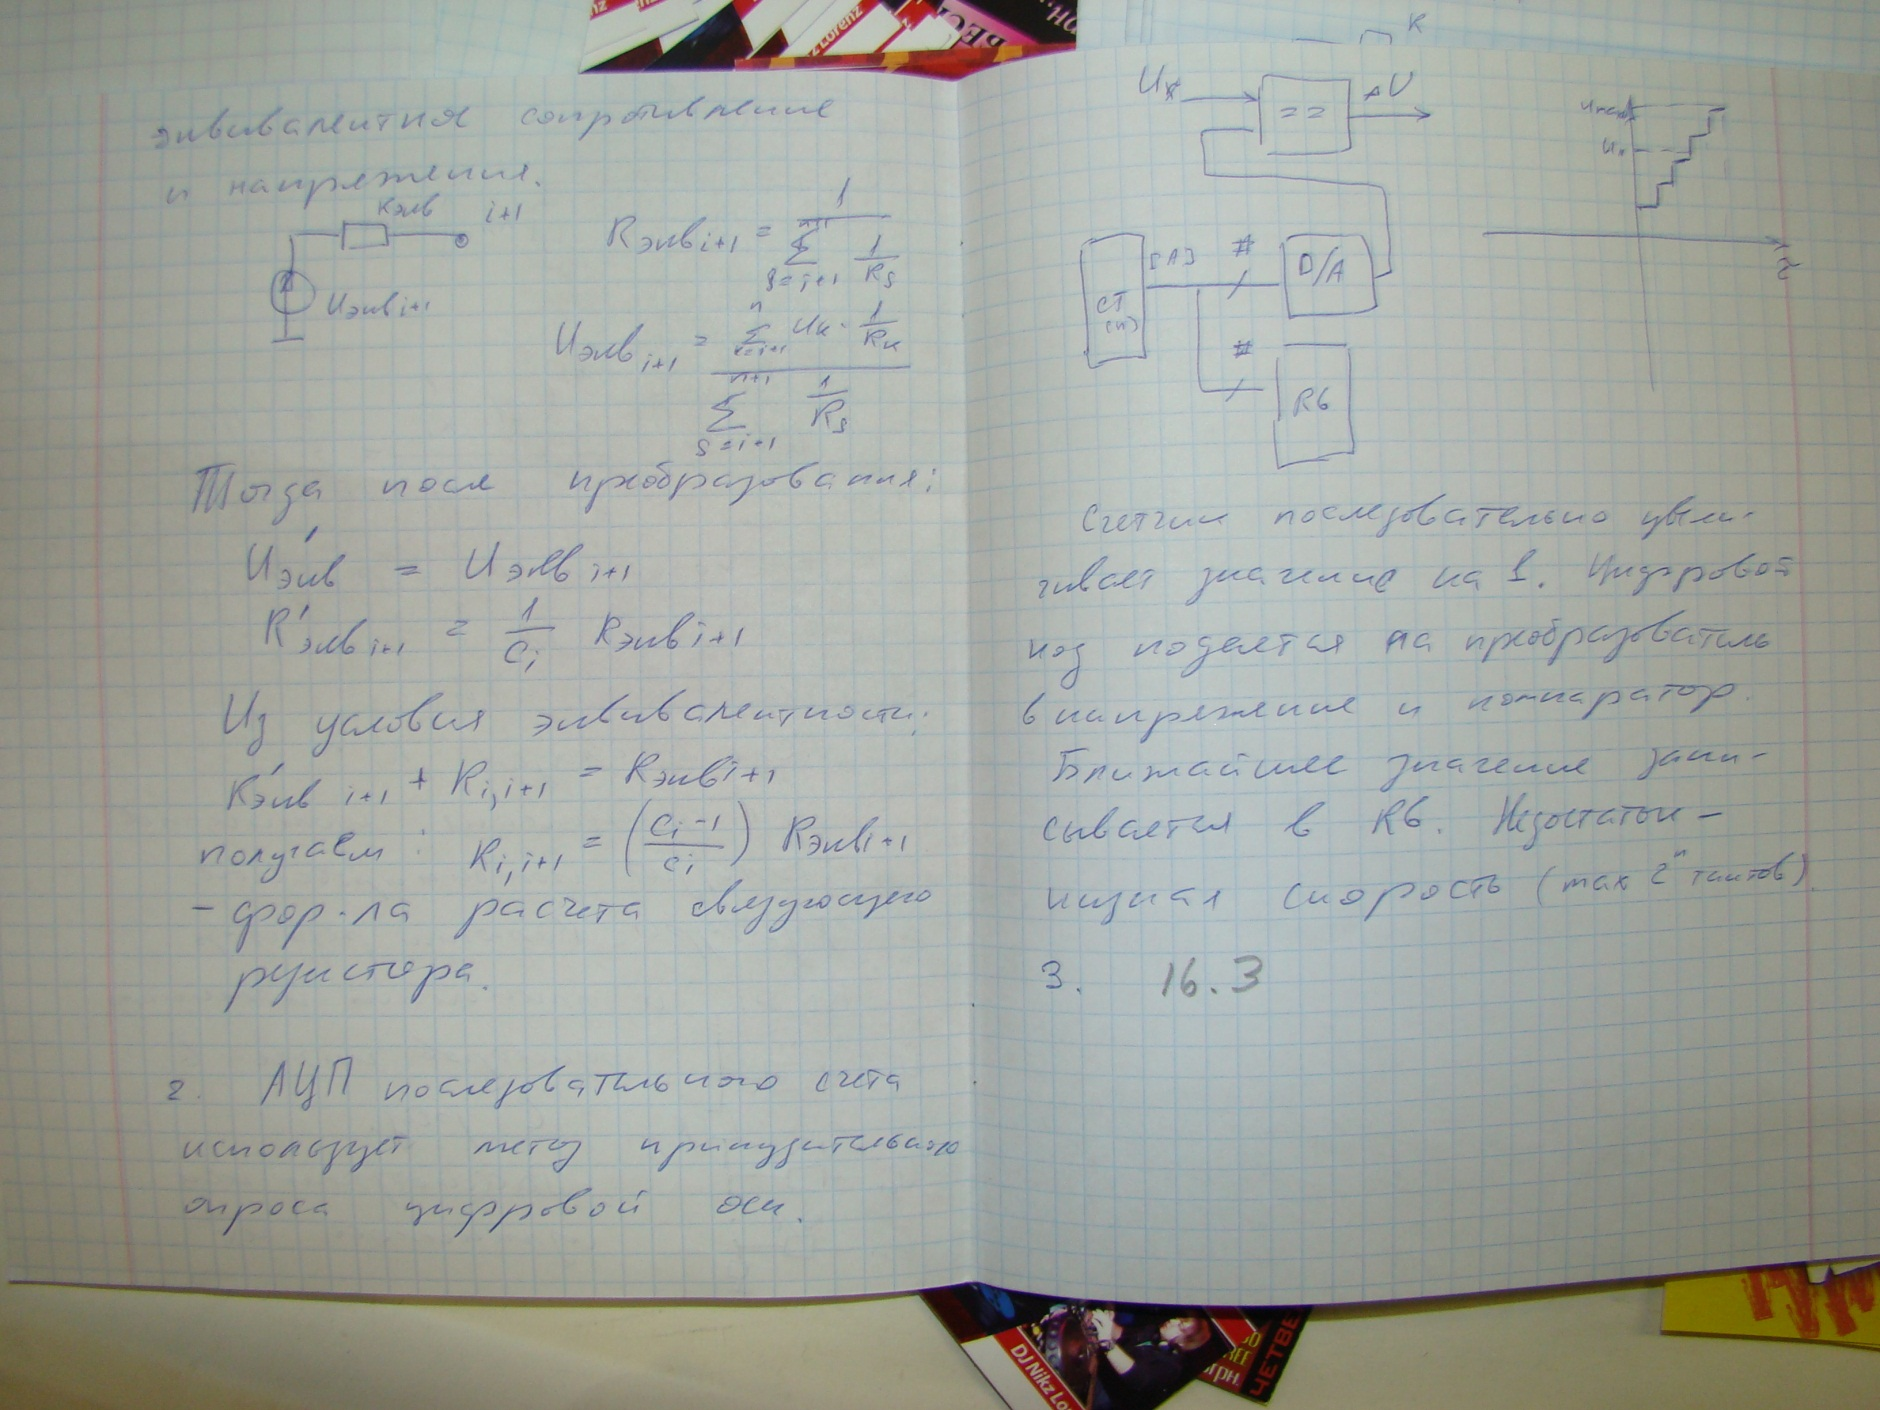 эквивалентное сопротивление
и напряжения.
Rэкв i+1
Uэкв i+1
Rэкв i+1 = 1 / Σ (s=i+1, n+1) 1/Rs
Uэкв i+1 = Σ (k=i+1, n) Uк · 1/Rк / Σ (s=i+1, n+1) 1/Rs
Тогда после преобразования:
U'экв = Uэкв i+1
R'экв i+1 = 1/Ci Rэкв i+1
Из условия эквивалентности:
R'экв i+1 + Ri,i+1 = Rэкв i+1
получаем: Ri,i+1 = (Ci-1 / Ci) Rэкв i+1
- фор-ла расчета связующего
резистора.
2. АЦП последовательного счета
использует метод принудительного
опроса цифровой оси.
K
Ux
==
ΔU
CT
(n)
#
D/A
#
RG
Ux
t
Счетчик последовательно увели-
чивает значение на 1. Цифровой
код подается на преобразователь
в напряжение и компаратор.
Ближайшее значение запи-
сывается в RG. Недостаток -
низкая скорость (max 2ⁿ тактов).
3. 16.3
Lorenz
DJ Nikz Lo
ЧЕТВЕ